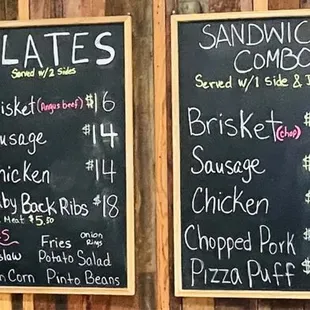 LATES
Served w/2 Sides
isket (Angus beef) $16
usage $14
hicken $14
by Back Ribs $18
Meat $5.50
Fries onion rings
slaw Potato Salad
n Corn Pinto Beans
SANDWIC
COMBO
Served w/1 Side &
Brisket (chop) $
Sausage
Chicken
Chopped Pork $
Pizza Puff $